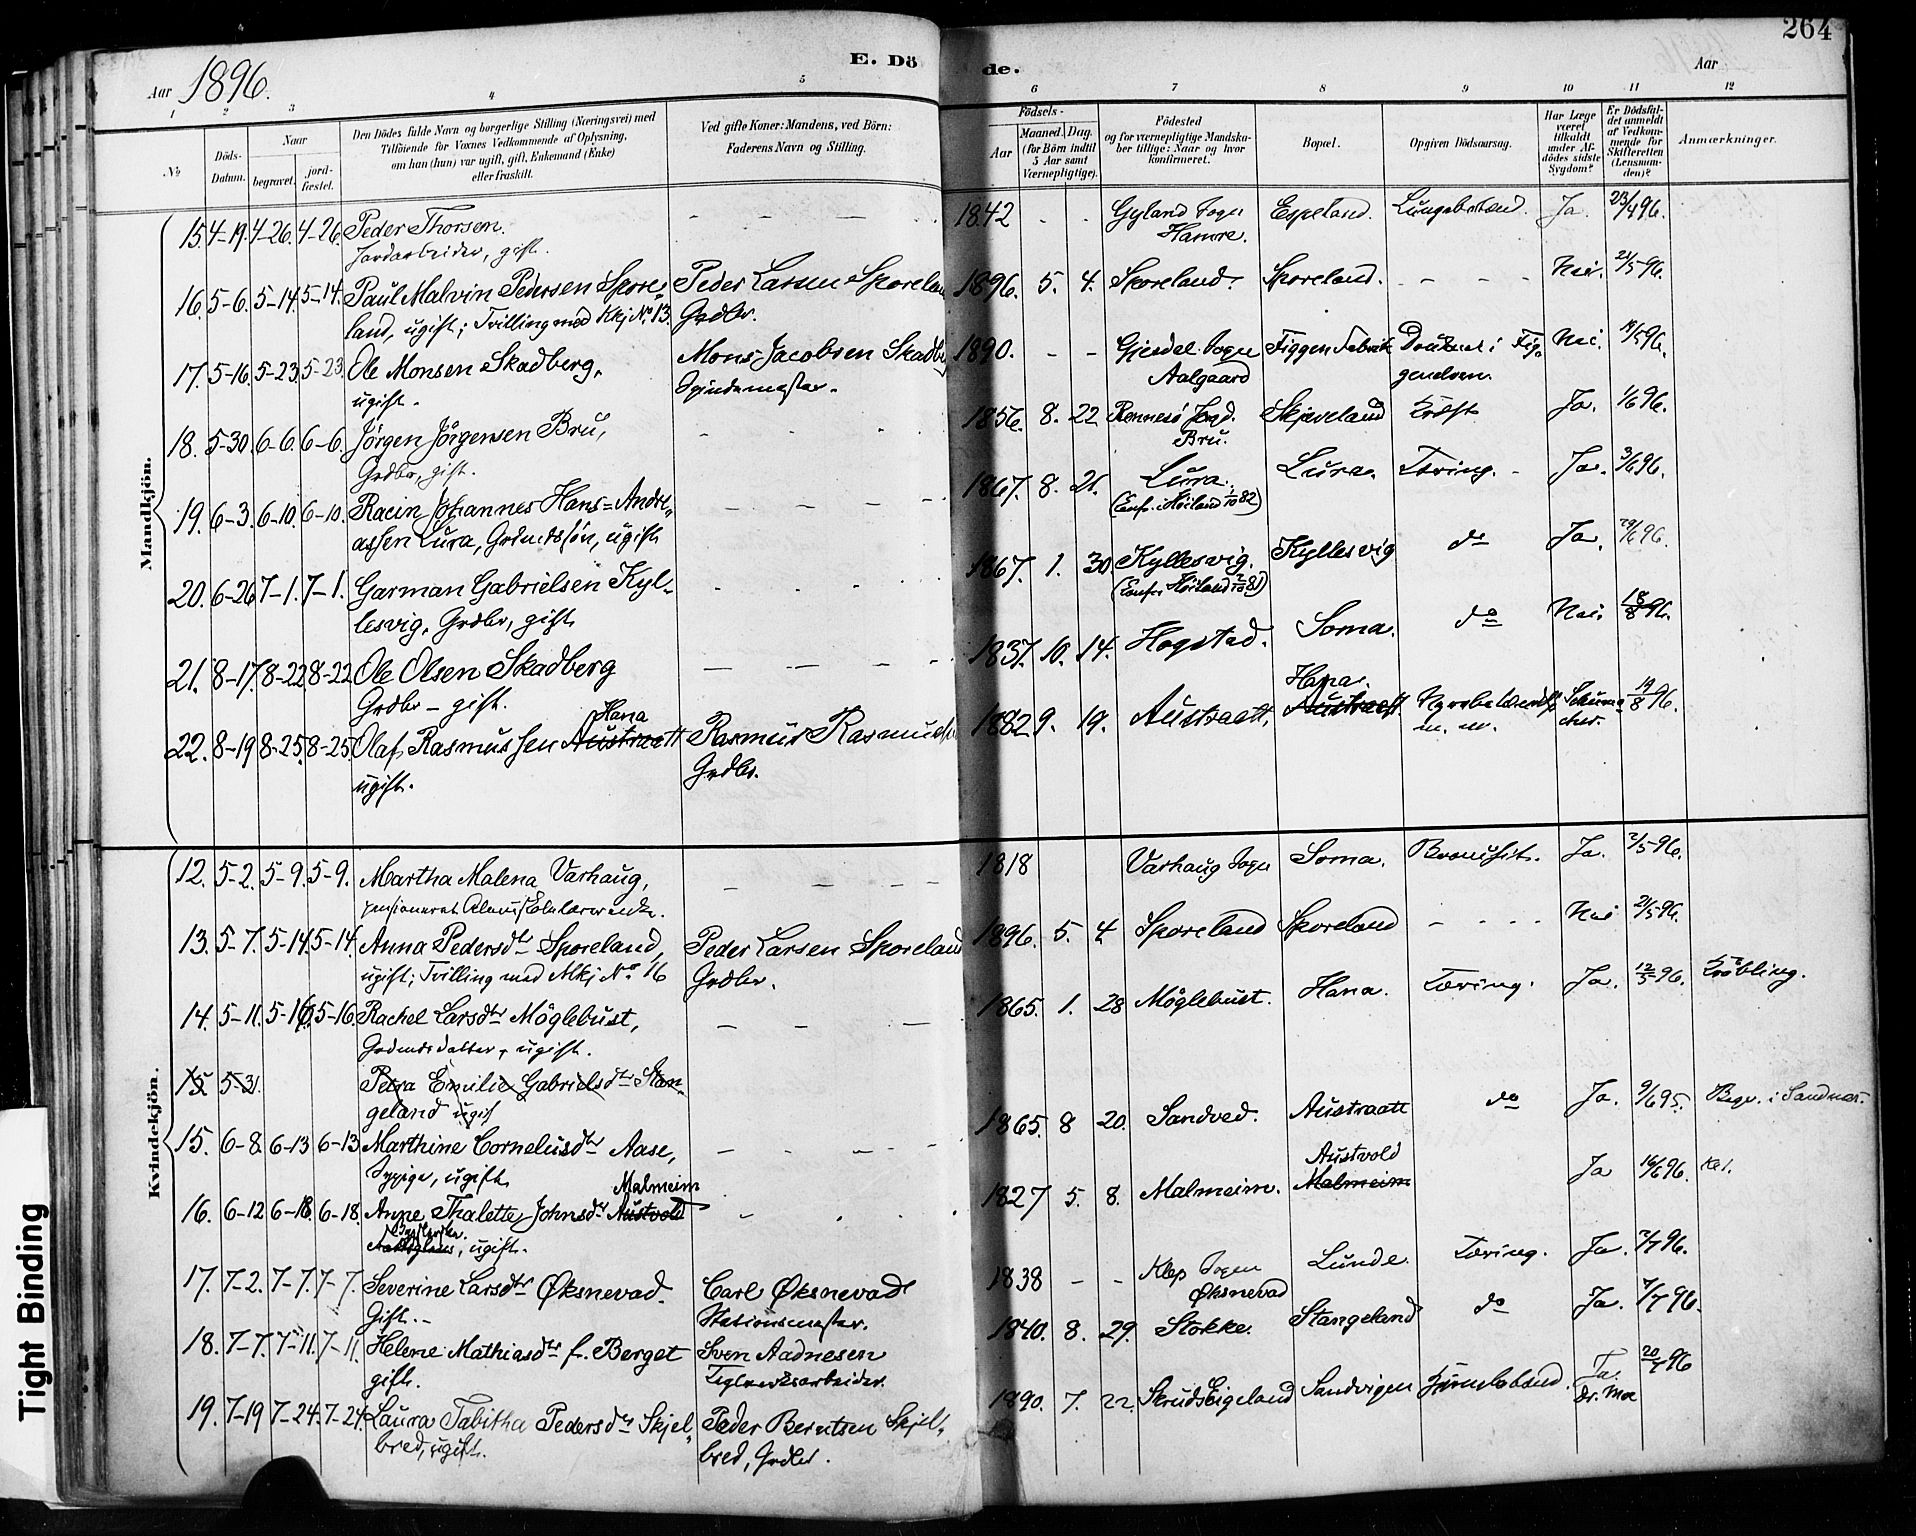 264
E. Dö
de.
Aar 1896.
Aar
1 2 3 4 5 6 7 8 9 10 11 12
№
Döds-Datum.
Naar
begravet.
jord-fæstet.
Den Dödes fulde Navn og borgerlige Stilling (Næringsvei) med
Tilföiende for Voxnes Vedkommende af Oplysning,
om han (hun) var ugift, gift, Enkemand (Enke)
eller fraskilt.
Ved gifte Koner: Mandens, ved Börn:
Faderens Navn og Stilling.
Födsels-
Aar
Maaned. Dag.
(for Börn indtil
5 Aar samt
Værnepligtige).
Födested
og for værnepligtige Mandska-
ber tillige: Naar og hvor
konfirmeret.
Bopæl.
Opgiven Dödsaarsag.
Har Læge
været
tilkaldt
under Af-
dödes sidste
Sygdom?
Er Dödsfal-
det anmeldt
af Vedkom-
mende for
Skifteretten
(Lensman-
den)?
Anmærkninger.
Mandkjön.
15 4-19. 4-26. 4-26. Peder Thorsen. - - - 1842 - - Gyland Sogn Espeland. Lungebetænd. Ja. 23/4 96.
Jordarbeider, gift. Hamre.
16. 5-6. 5-14. 5-14. Paul Malvin Pedersen Spore- Peder Larsen Sporeland 1896. 5. 4. Sporeland. Sporeland. - - - Nei. 21/5 96.
land, ugift; Tvilling med Kkj No. 13. Grdbr.
17. 5-16. 5-23. 5-23. Ole Monsen Skadberg, Mons Jacobsen Skadbg 1890. - - Gjesdal Sogn Figgen Fabrik Druknet i Fig- Nei. 19/5 96.
ugift. Spindemester. Aalgaard genelven.
18. 5-30. 6-6. 6-6. Jörgen Jörgensen Bru, - - - 1856. 8. 22 Rennesö Sogn. Skjæveland Kræft Ja. 1/6 96.
Grdbr, gift. Bru.
19. 6-3. 6-10. 6-10. Racin Johannes Hans=Andre- - - - 1867. 8. 21. Lura. Lura. Tæring. Ja. 3/6 96.
assen Lura, Grdmdssön, ugift (Conf. i Höiland 1/10 82)
20. 6-26 7-1. 7-1. Garman Gabrielsen Kyl- - - - 1867. 1. 30 Kyllesvig. Kyllesvig do Ja. 29/6 96.
lesvig, Grdbr, gift (Conf. i Höiland 2/10 81)
21. 8-17. 8-22. 8-22. Ole Olsen Skadberg - - - 1837. 10. 14. Hogstad. Soma. do Nei. 18/8 96.
Grdbr - gift.
Hana Hana.
22. 8-19 8-25. 8-25. Olaf Rasmussen Austraatt Rasmus Rasmussen 1882 9. 19. Austraatt, Austraatt 19/8 96.
ugift. Grdbr. m. m.
Kvindekjön.
12. 5-2. 5-9. 5-9. Martha Malena Varhaug, - - - 1818 Varhaug Sogn Soma. Bronchit. Ja. 2/5 96.
13. 5-7. 5-14. 5-14. Anna Pedersdtr Sporeland, Peder Larsen Sporeland 1896. 5. 4 Sporeland Sporeland - - - Nei 21/5 96.
ugift; Tvilling med Mkj No. 16 Grdbr.
14. 5-11. 5-16. 5-16. Rachel Larsdtr Möglebust, - - - 1865. 1. 28 Möglebust. Hana. Tæring. Ja. 12/5 96. Kröbling.
Grdmdsdatter, ugift.
15 5-31. Petra Emilie Gabrielsdtr Stan-
geland ugift
15. 6-8. 6-13 6-13 Marthine Corneliusdtr Aase, - - - 1865. 8 20. Sandved. Austraatt do Ja. 9/6 95. Begr. i Sandnæs.
Sypige, ugift.
Malmeim Austvold
16. 6-12 6-18. 6-18. Anne Thalette Johnsdtr Austvold - - - 1827 5. 8. Malmeim. Malmeim Ja 16/6 96.
ugift.
17. 7-2. 7-7. 7-7. Severine Larsdtr Øksnevad. Carl Øksnevad 1838 - - Klep Sogn Lunde. Tæring. Ja. 2/7 96.
Gift. Stationsmester. Øksnevad
18. 7-7. 7-11. 7-11. Helene Mathiasdtr f. Berget Sven Aadnesen 1840. 8. 29. Stokke. Stangeland do Ja. 7/7 96.
gift. Teglverksarbeider.
19. 7-19 7-24. 7-24. Laura Tabitha Pedersdtr Skjel- Peder Berntsen Skjel- 1890. 7. 22. Skruds Eigeland Sandvigen Hjernebetænd. Ja. 20/7 96
bred, ugift. bred, Grdbr. Dr. Moe
Tight Binding